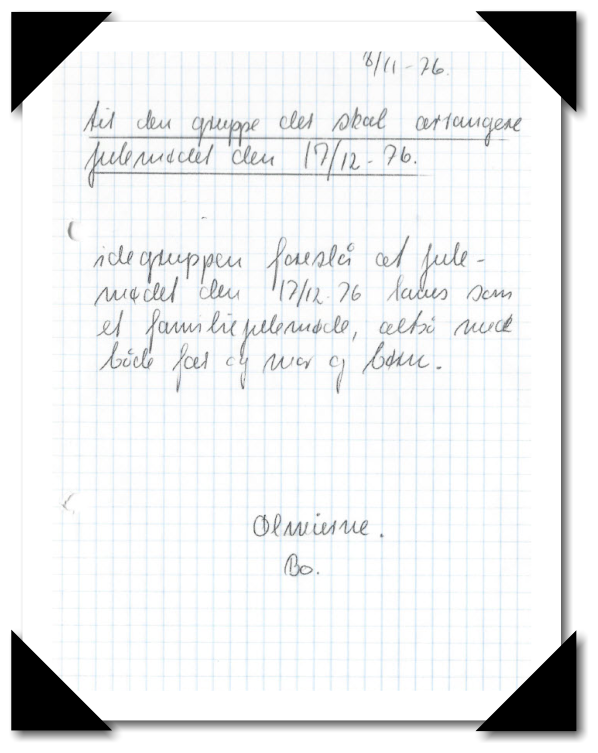 8/11-76.
til den gruppe der skal arrangere
julemødet den 17/12-76.
idegruppen foreslå at jule-
mødet den 17/12 76 laves som
et familiejulemøde, altså med
både far og mor og børn.
Bo.